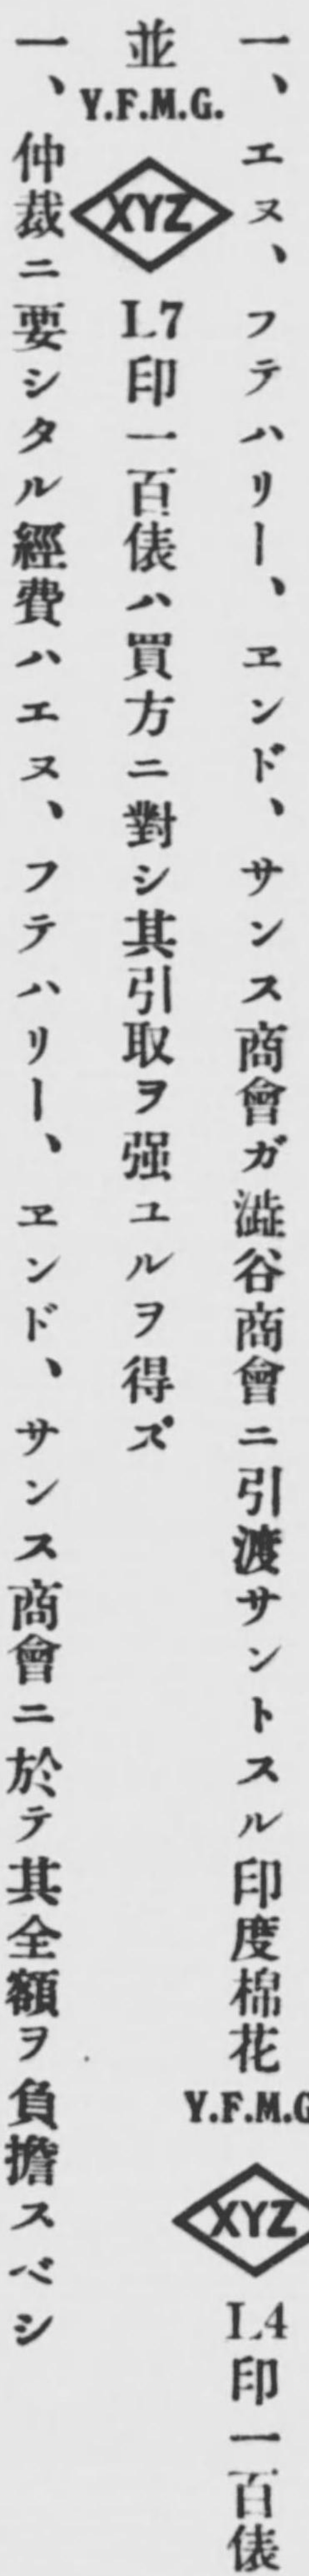 一、エヌ、フテハリー、ヱンド、サンス商會ガ澁谷商會ニ引渡サントスル印度棉花 Y.F.M.G XYZ L4印一百俵
並 Y.F.M.G. XYZ L7印一百俵ハ買方ニ對シ其引取ヲ强ユルヲ得ズ
一、仲裁ニ要シタル經費ハエヌ、フテハリー、ヱンド、サンス商會ニ於テ其全額ヲ負擔スベシ